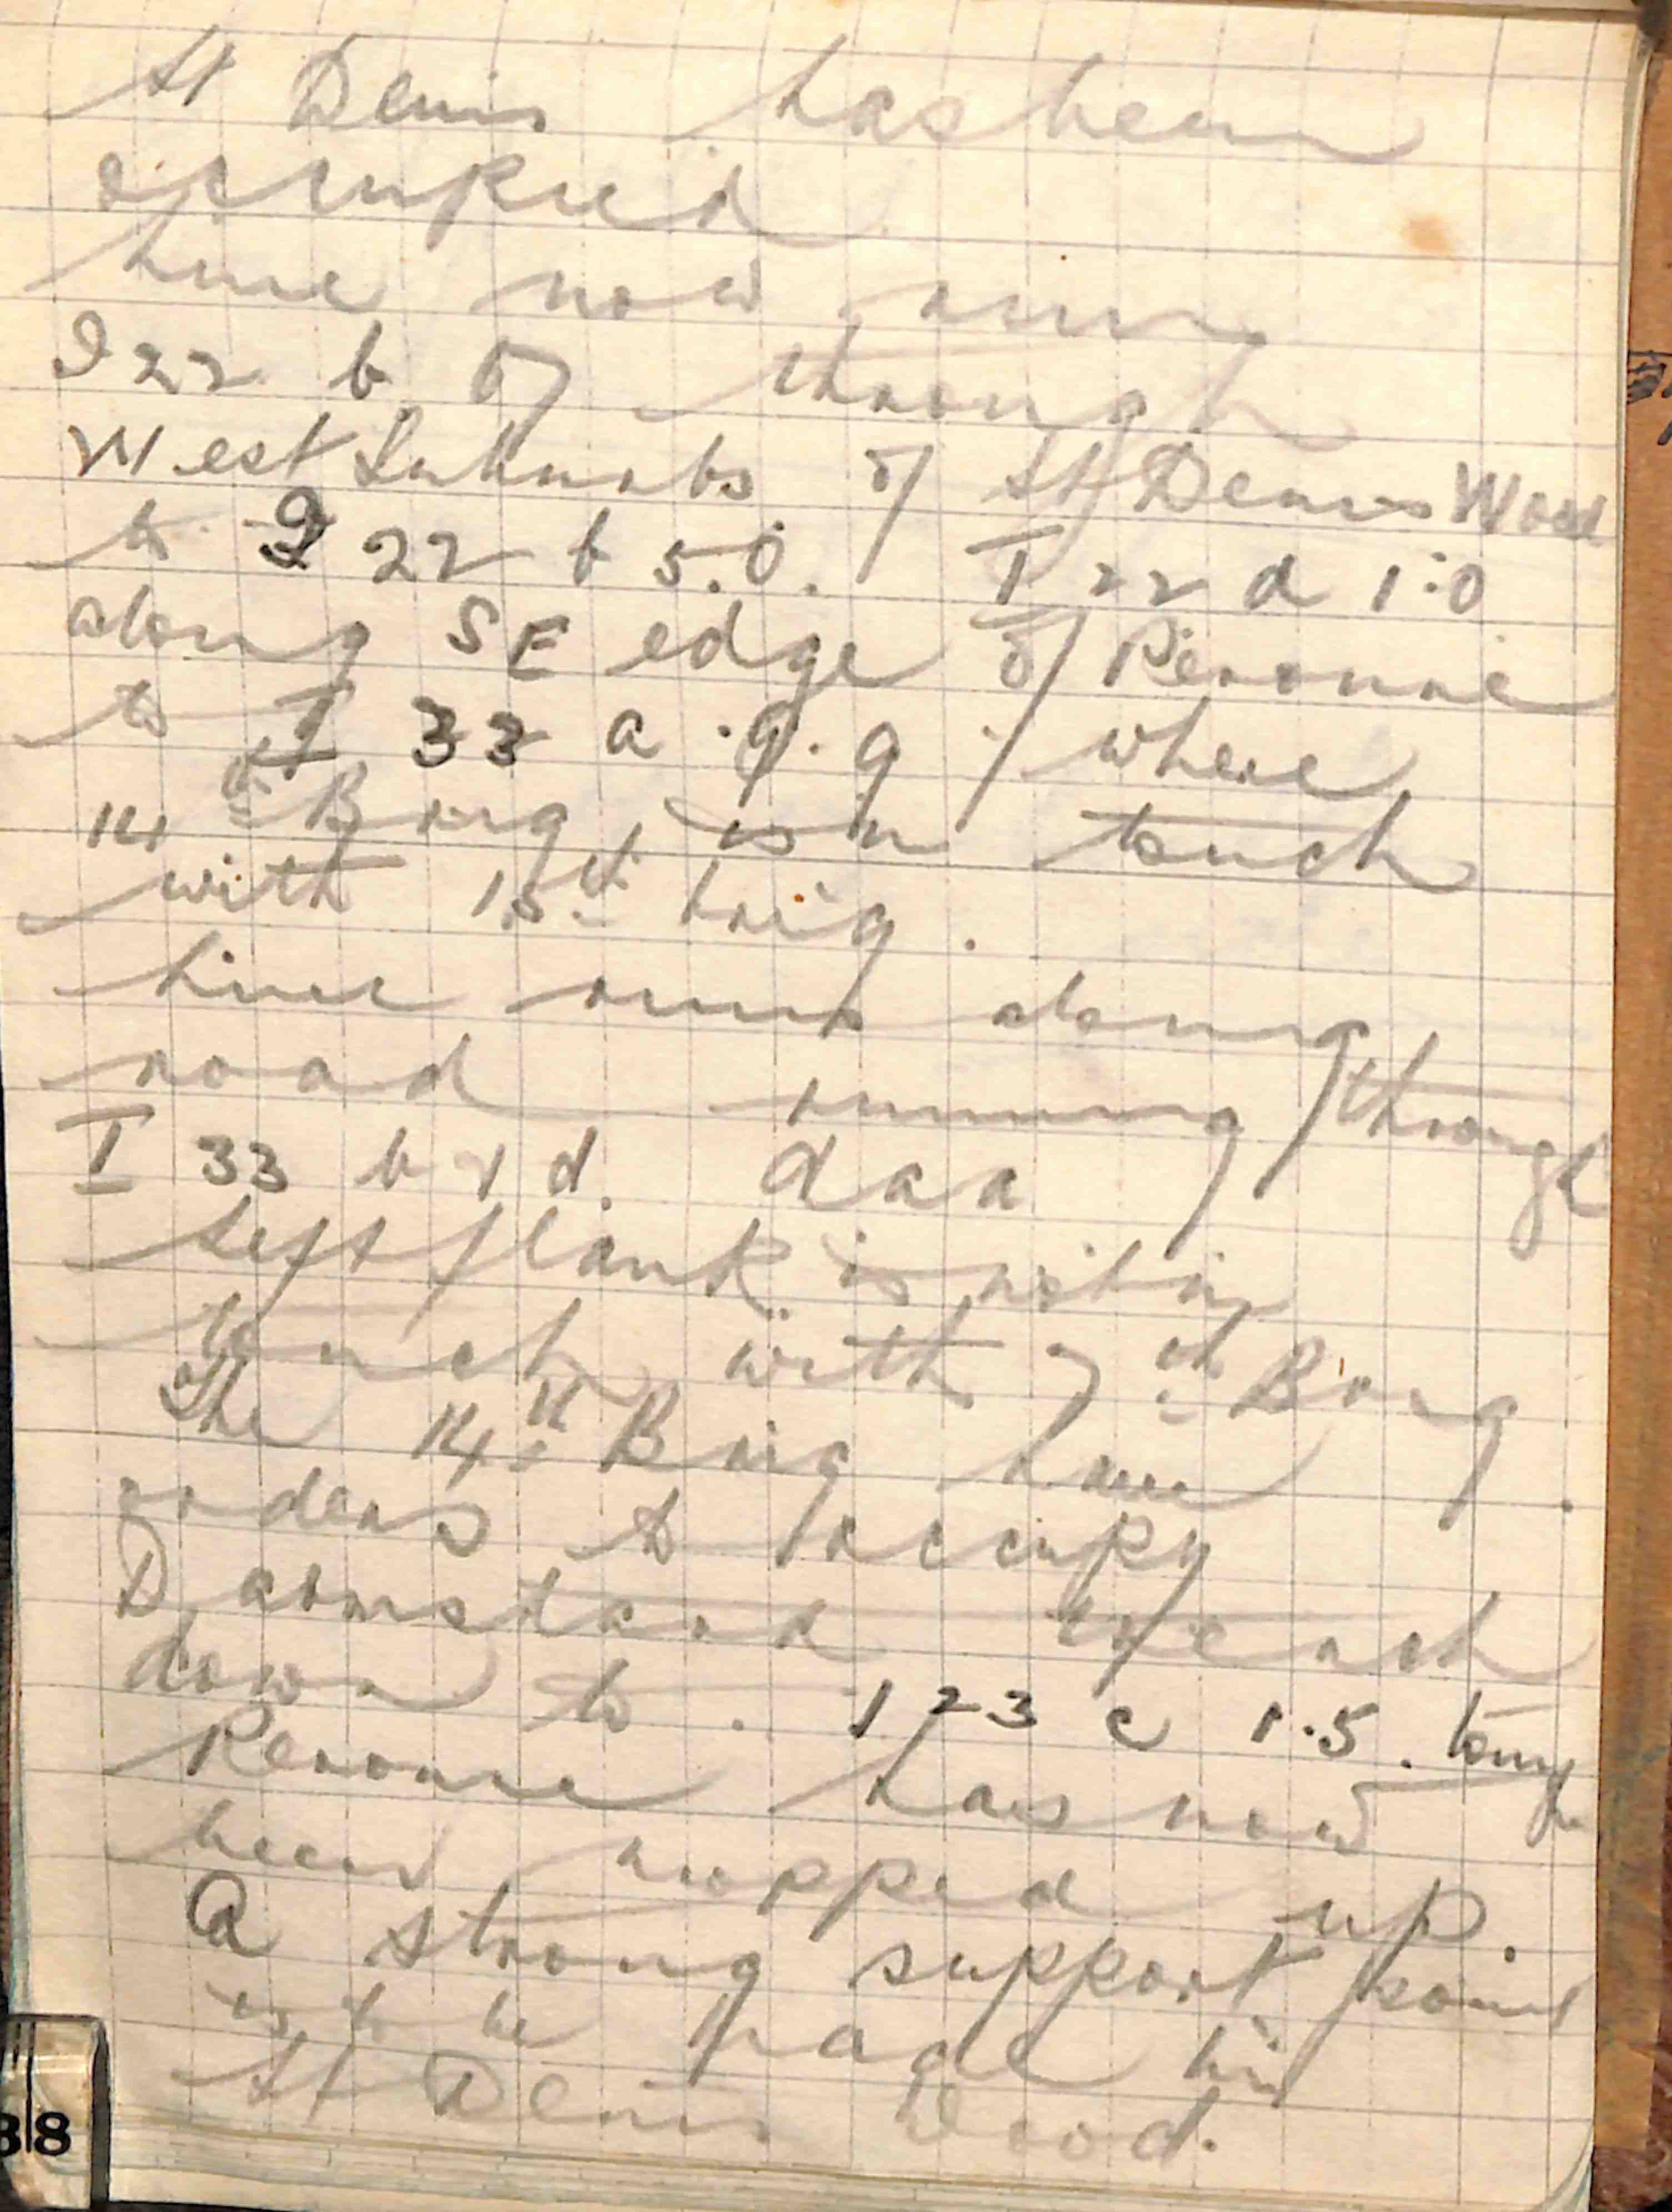 St Denis has been
occupied
Line now runs
I 22 b 07 through
West Suburbs of St Denis Wood
to I 22 b 5.0. I 22 d 1.0
along SE edge of Peronne
to I 33 a .9.9 where
14th Brig is in touch
with 15th brig.
Line runs along
road running through
I 33 b & d.
Left flank is not in
touch with 7th Brig.
The 14th Brig have
orders to occupy
Darmstard trench
down to . I 23 c 1.5.
Peronne has now
been mopped up.
A strong support point
is to be made in
St Denis Wood.
38